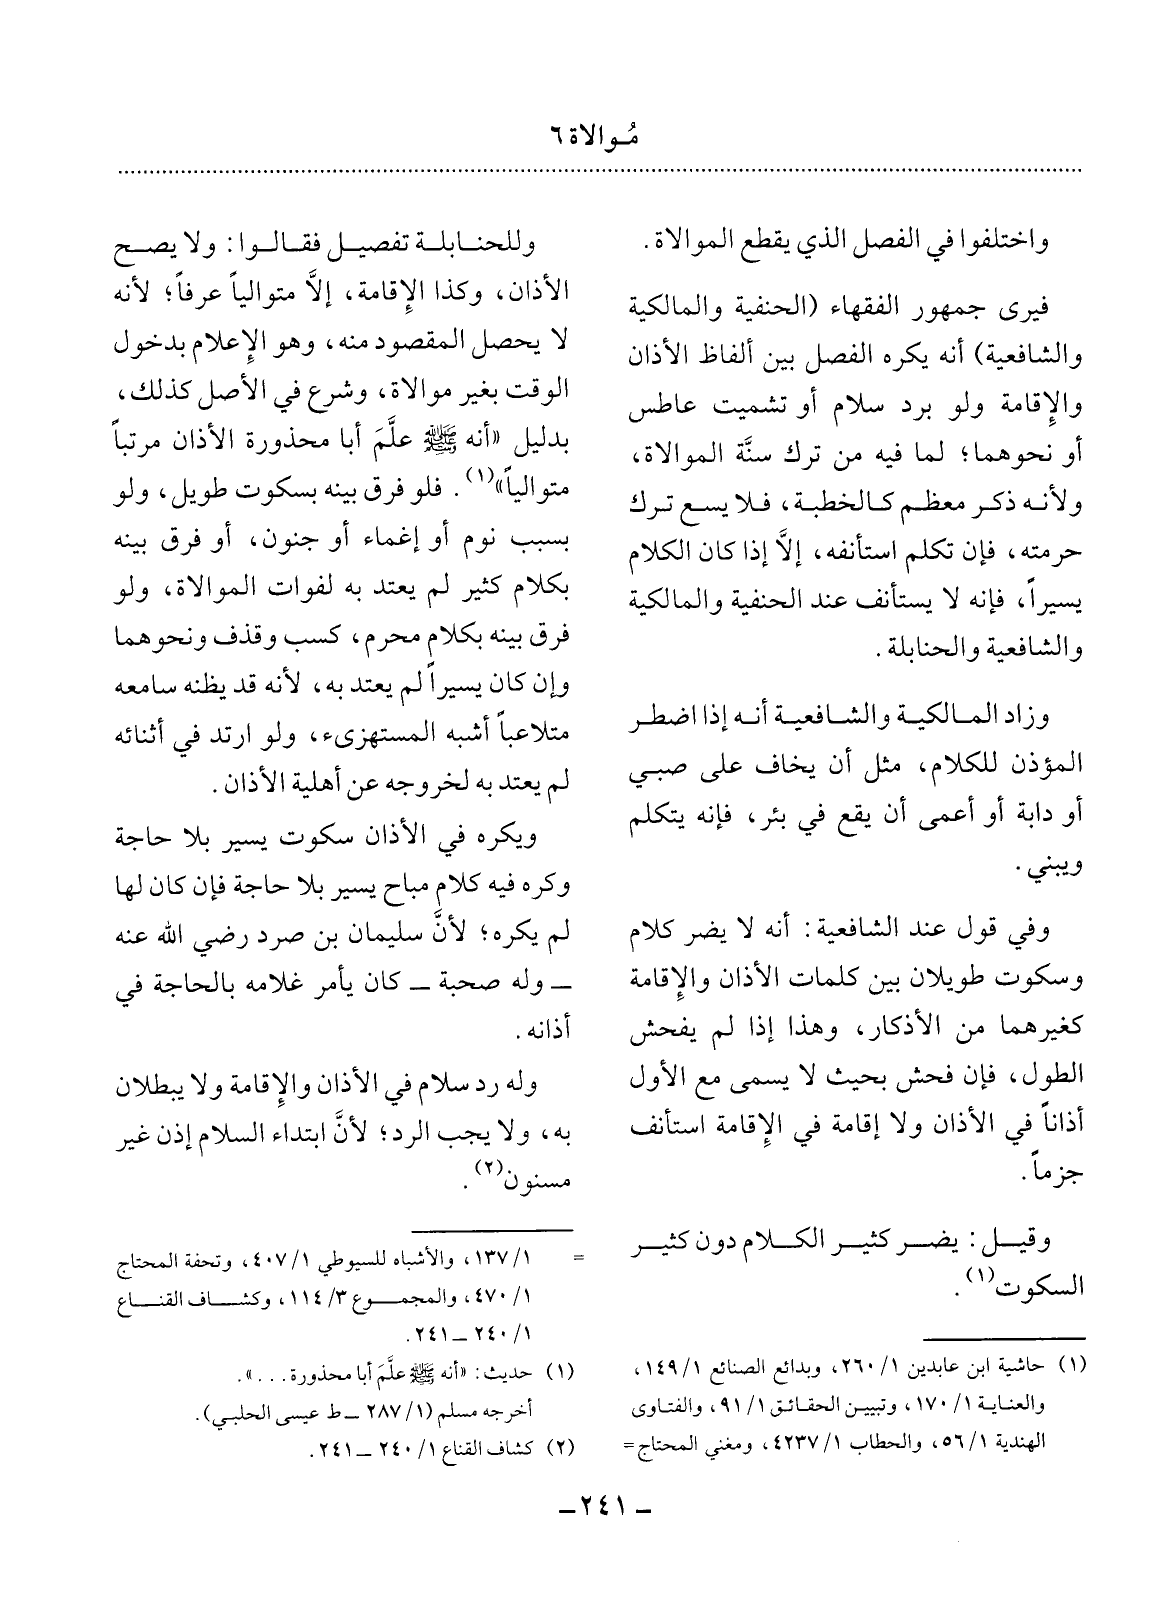 مُوالاة ٦
واختلفوا في الفصل الذي يقطع الموالاة.
فيرى جمهور الفقهاء (الحنفية والمالكية
والشافعية) أنه يكره الفصل بين ألفاظ الأذان
والإِقامة ولو برد سلام أو تشميت عاطس
أو نحوهما؛ لما فيه من ترك سنَّة الموالاة،
ولأنه ذكر معظم كالخطبة، فلا يسع ترك
حرمته، فإن تكلم استأنفه، إلَّا إذا كان الكلام
يسيراً، فإنه لا يستأنف عند الحنفية والمالكية
والشافعية والحنابلة.
وزاد المالكية والشافعية أنه إذا اضطر
المؤذن للكلام، مثل أن يخاف على صبي
أو دابة أو أعمى أن يقع في بئر، فإنه يتكلم
ويبني.
وفي قول عند الشافعية: أنه لا يضر كلام
وسكوت طويلان بين كلمات الأذان والإِقامة
كغيرهما من الأذكار، وهذا إذا لم يفحش
الطول، فإن فحش بحيث لا يسمى مع الأول
أذاناً في الأذان ولا إقامة في الإِقامة استأنف
جزماً.
وقيل: يضر كثير الكلام دون كثير
السكوت(١).
(١) حاشية ابن عابدين ١/ ٢٦٠، وبدائع الصنائع ١/ ١٤٩،
والعناية ١/ ١٧٠، وتبيين الحقائق ١/ ٩١، والفتاوى
الهندية ١/ ٥٦، والحطاب ١/ ٤٢٣٧، ومغني المحتاج=
وللحنابلة تفصيل فقالوا: ولا يصح
الأذان، وكذا الإِقامة، إلَّا متوالياً عرفاً؛ لأنه
لا يحصل المقصود منه، وهو الإِعلام بدخول
الوقت بغير موالاة، وشرع في الأصل كذلك،
بدليل «أنه ﷺ علَّمَ أبا محذورة الأذان مرتباً
متوالياً»(١). فلو فرق بينه بسكوت طويل، ولو
بسبب نوم أو إغماء أو جنون، أو فرق بينه
بكلام كثير لم يعتد به لفوات الموالاة، ولو
فرق بينه بكلام محرم، كسب وقذف ونحوهما
وإن كان يسيراً لم يعتد به، لأنه قد يظنه سامعه
متلاعباً أشبه المستهزىء، ولو ارتد في أثنائه
لم يعتد به لخروجه عن أهلية الأذان.
ويكره في الأذان سكوت يسير بلا حاجة
وكره فيه كلام مباح يسير بلا حاجة فإن كان لها
لم يكره؛ لأنَّ سليمان بن صرد رضي الله عنه
ــ وله صحبة ــ كان يأمر غلامه بالحاجة في
أذانه.
وله رد سلام في الأذان والإِقامة ولا يبطلان
به، ولا يجب الرد؛ لأنَّ ابتداء السلام إذن غير
مسنون(٢).
= ١/ ١٣٧، والأشباه للسيوطي ١/ ٤٠٧، وتحفة المحتاج
١/ ٤٧٠، والمجموع ٣/ ١١٤، وكشاف القناع
١/ ٢٤٠ ــ ٢٤١.
(١) حديث: «أنه ﷺ علَّمَ أبا محذورة...».
أخرجه مسلم (١/ ٢٨٧ ــ ط عيسى الحلبي).
(٢) كشاف القناع ١/ ٢٤٠ ــ ٢٤١.
ــ ٢٤١ ــ